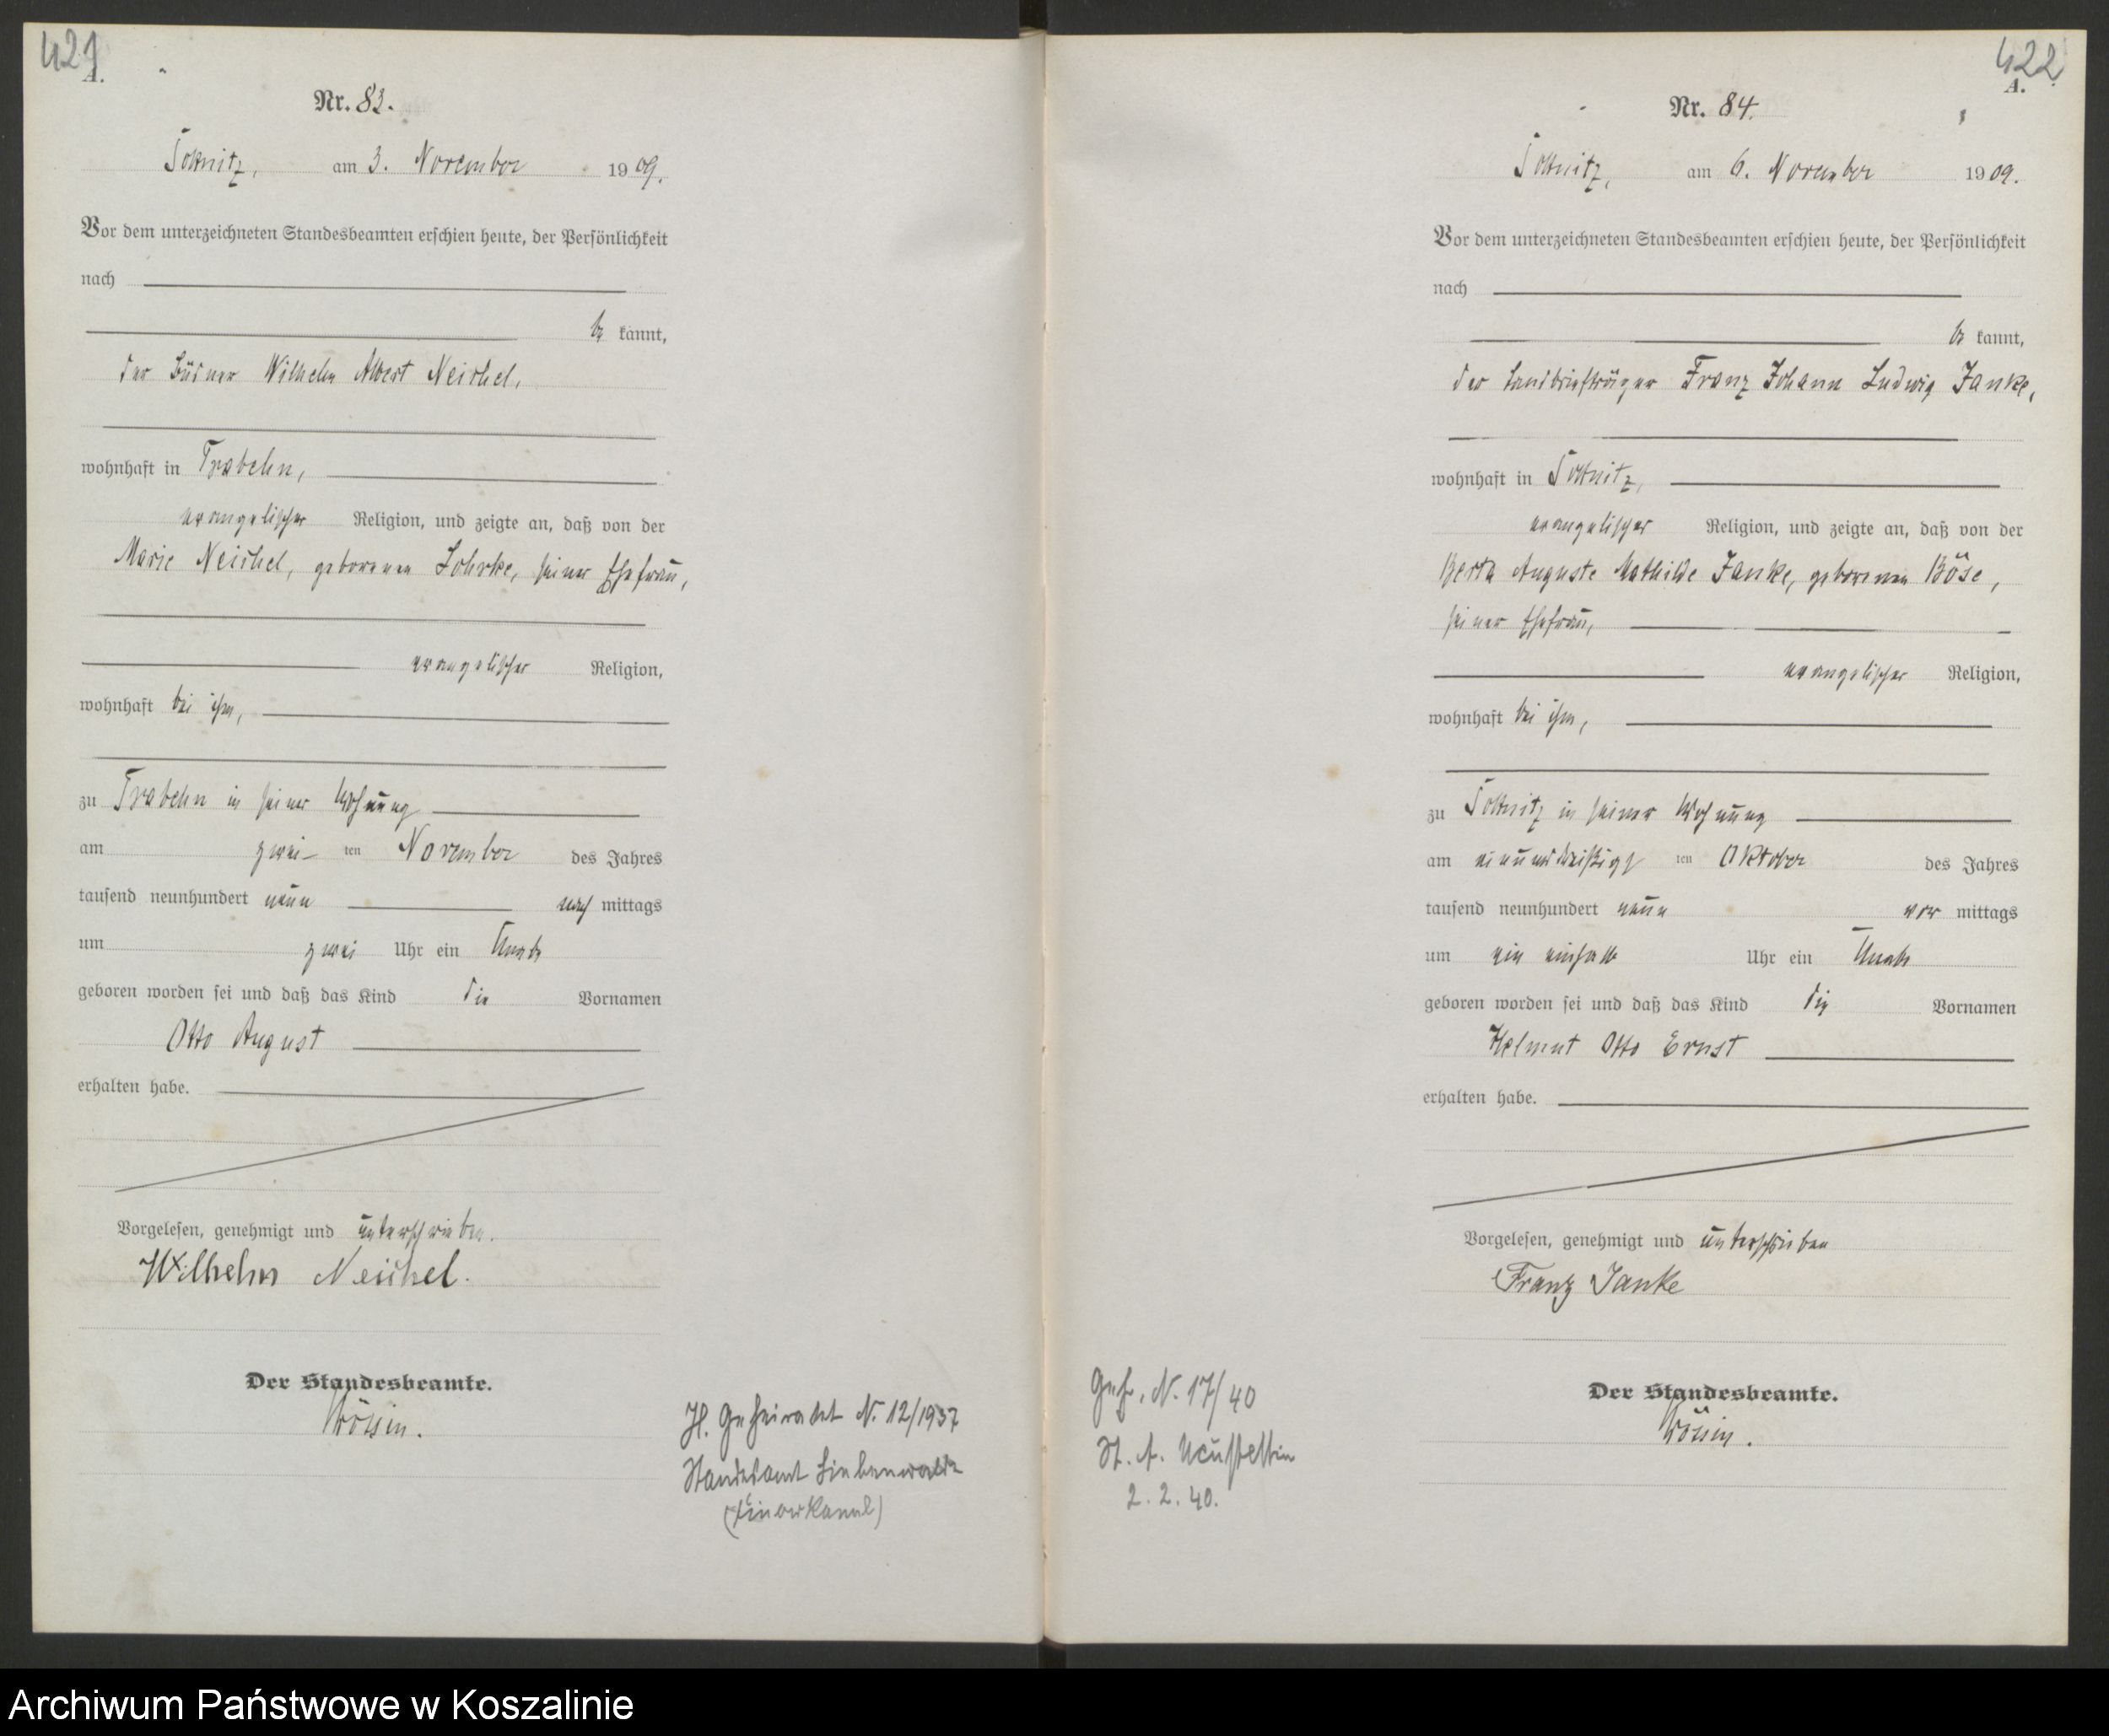 421
A.
Nr. 83.
Lottnitz, am 3. November 1909.
Vor dem unterzeichneten Standesbeamten erschien heute, der Persönlichkeit
nach
be kannt,
der Büdner Wilhelm Albert Neichel,
wohnhaft in Trabehn,
evangelischer Religion, und zeigte an, daß von der
Marie Neichel, geborenen Lohrke, seiner Ehefrau,
evangelischer Religion,
wohnhaft bei ihm,
zu Trabehn in seiner Wohnung
am zwei ten November des Jahres
tausend neunhundert neun nach mittags
um zwei Uhr ein Knabe
geboren worden sei und daß das Kind die Vornamen
Otto August
erhalten habe.
Vorgelesen, genehmigt und unterschrieben.
Wilhelm Neichel.
Der Standesbeamte.
H. Geheiratet N. 12/1937
Standesamt Liebenwalde
422
A.
Nr. 84.
Lottnitz, am 6. November 1909.
Vor dem unterzeichneten Standesbeamten erschien heute, der Persönlichkeit
nach
be kannt,
der Landbriefträger Franz Johann Ludwig Janke,
wohnhaft in Lottnitz,
evangelischer Religion, und zeigte an, daß von der
Berta Auguste Mathilde Janke, geborenen Böse,
seiner Ehefrau,
evangelischer Religion,
wohnhaft bei ihm,
zu Lottnitz in seiner Wohnung
am einunddreißigs ten Oktober des Jahres
tausend neunhundert neun vor mittags
um ein einhalb Uhr ein Knabe
geboren worden sei und daß das Kind die Vornamen
Helmut Otto Ernst
erhalten habe.
Vorgelesen, genehmigt und unterschrieben
Franz Janke
Der Standesbeamte.
Geh. N. 17/40
St. A. Neustettin
2. 2. 40.
Archiwum Państwowe w Koszalinie